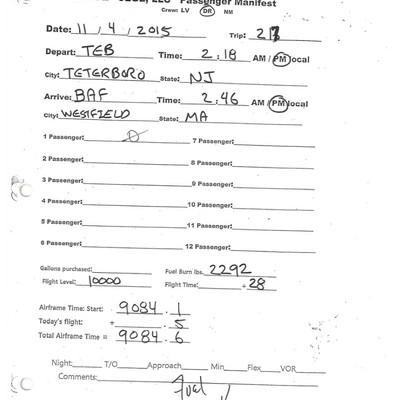 LLC Passenger Manifest
Crew: LV DR NM
Date: 11 / 4 / 2015 Trip:
Depart: TEB Time: 2:18 AM / PM local
City: TETERBORO State: NJ
Arrive: BAF Time: 2:46 AM / PM local
City: WESTFIELD State: MA
1 Passenger: 0 7 Passenger:
2 Passenger: 8 Passenger:
3 Passenger: 9 Passenger:
4 Passenger: 10 Passenger:
5 Passenger: 11 Passenger:
6 Passenger: 12 Passenger:
Gallons purchased: Fuel Burn lbs. 2292
Flight Level: 10000 Flight Time: 28
Airframe Time: Start: 9084.1
Today's flight: + .5
Total Airframe Time = 9084.6
Night: T/O Approach Min Flex VOR
Comments: Fuel